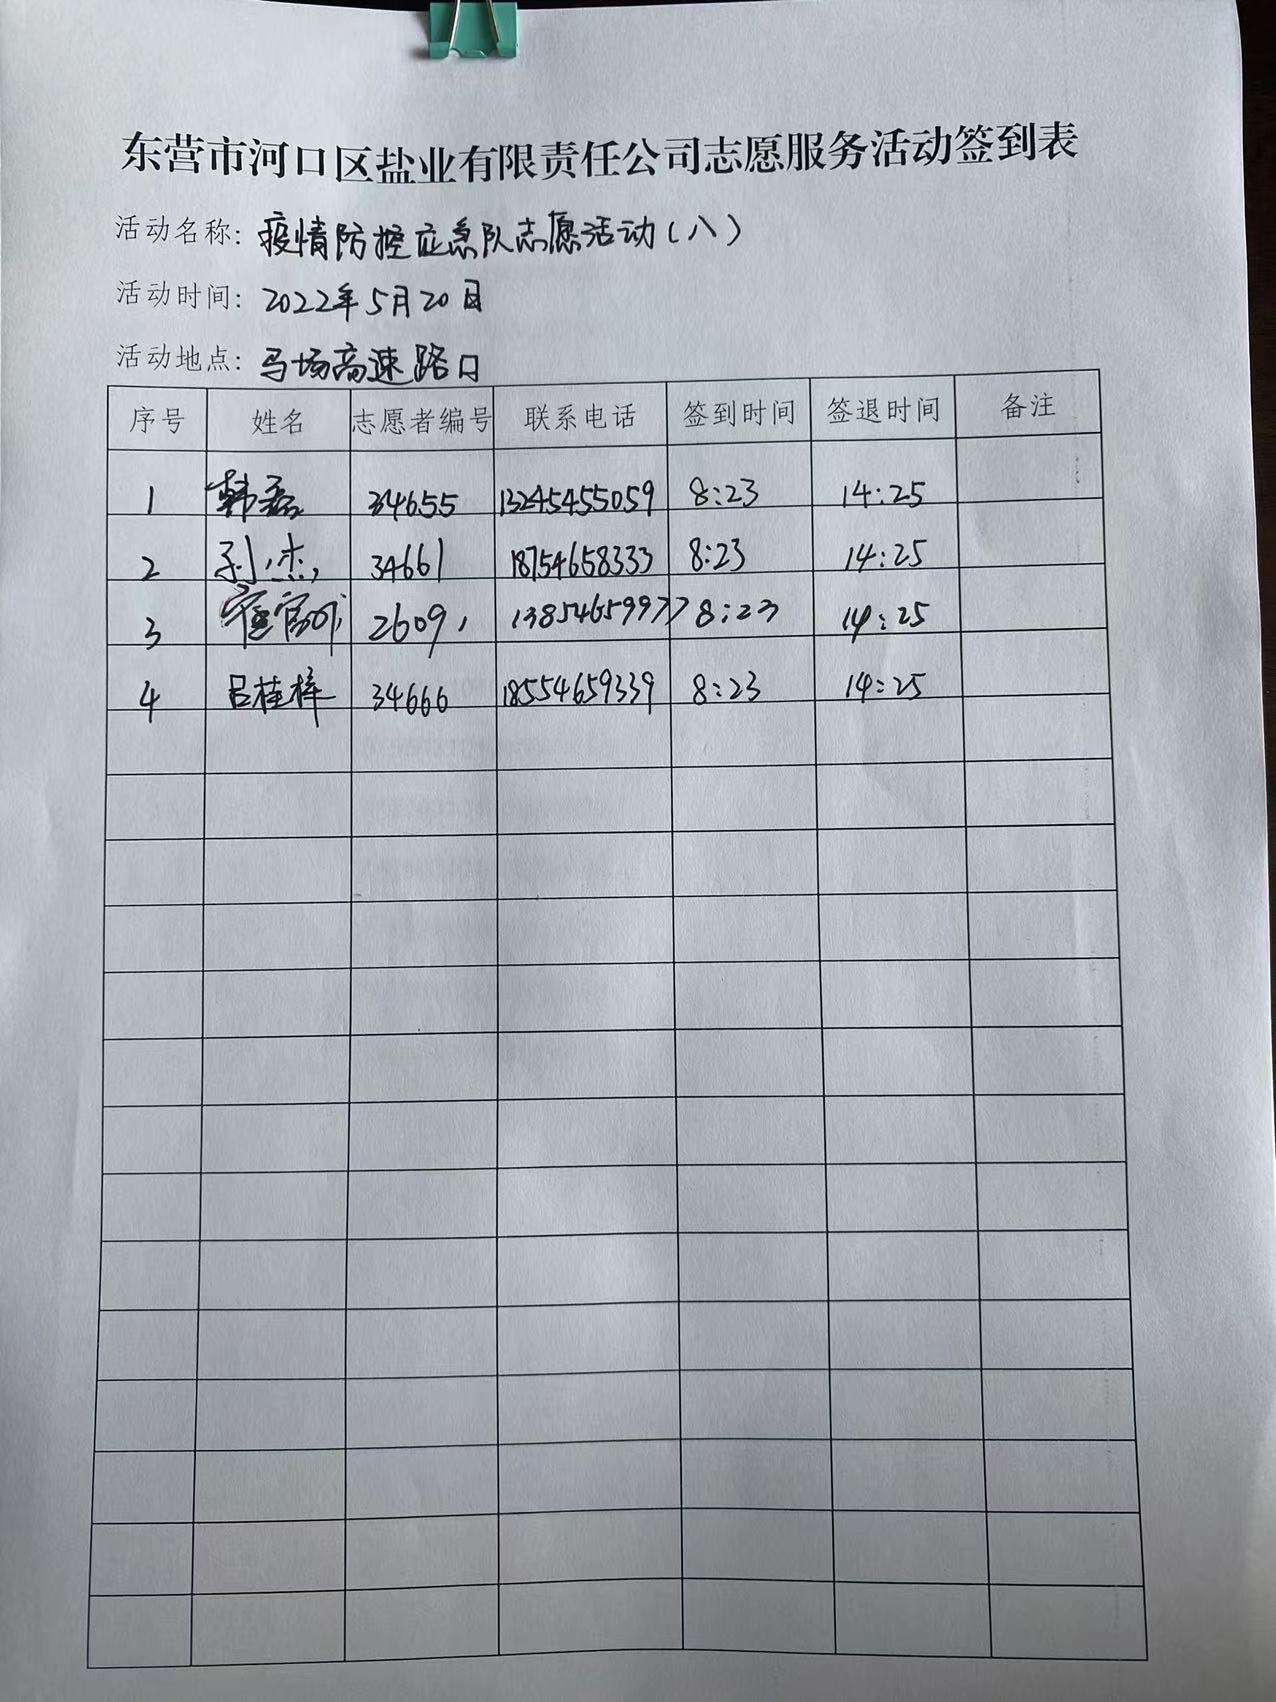 东营市河口区盐业有限责任公司志愿服务活动签到表
活动名称: 疫情防控应急队志愿活动(八)
活动时间: 2022年5月20日
活动地点: 马场高速路口
序号 姓名 志愿者编号 联系电话 签到时间 签退时间 备注
1 韩磊 34655 13245455059 8:23 14:25
2 孙杰 34661 18754658333 8:23 14:25
3 26091 13854659977 8:23 14:25
4 吕桂梓 34666 18554659339 8:23 14:25